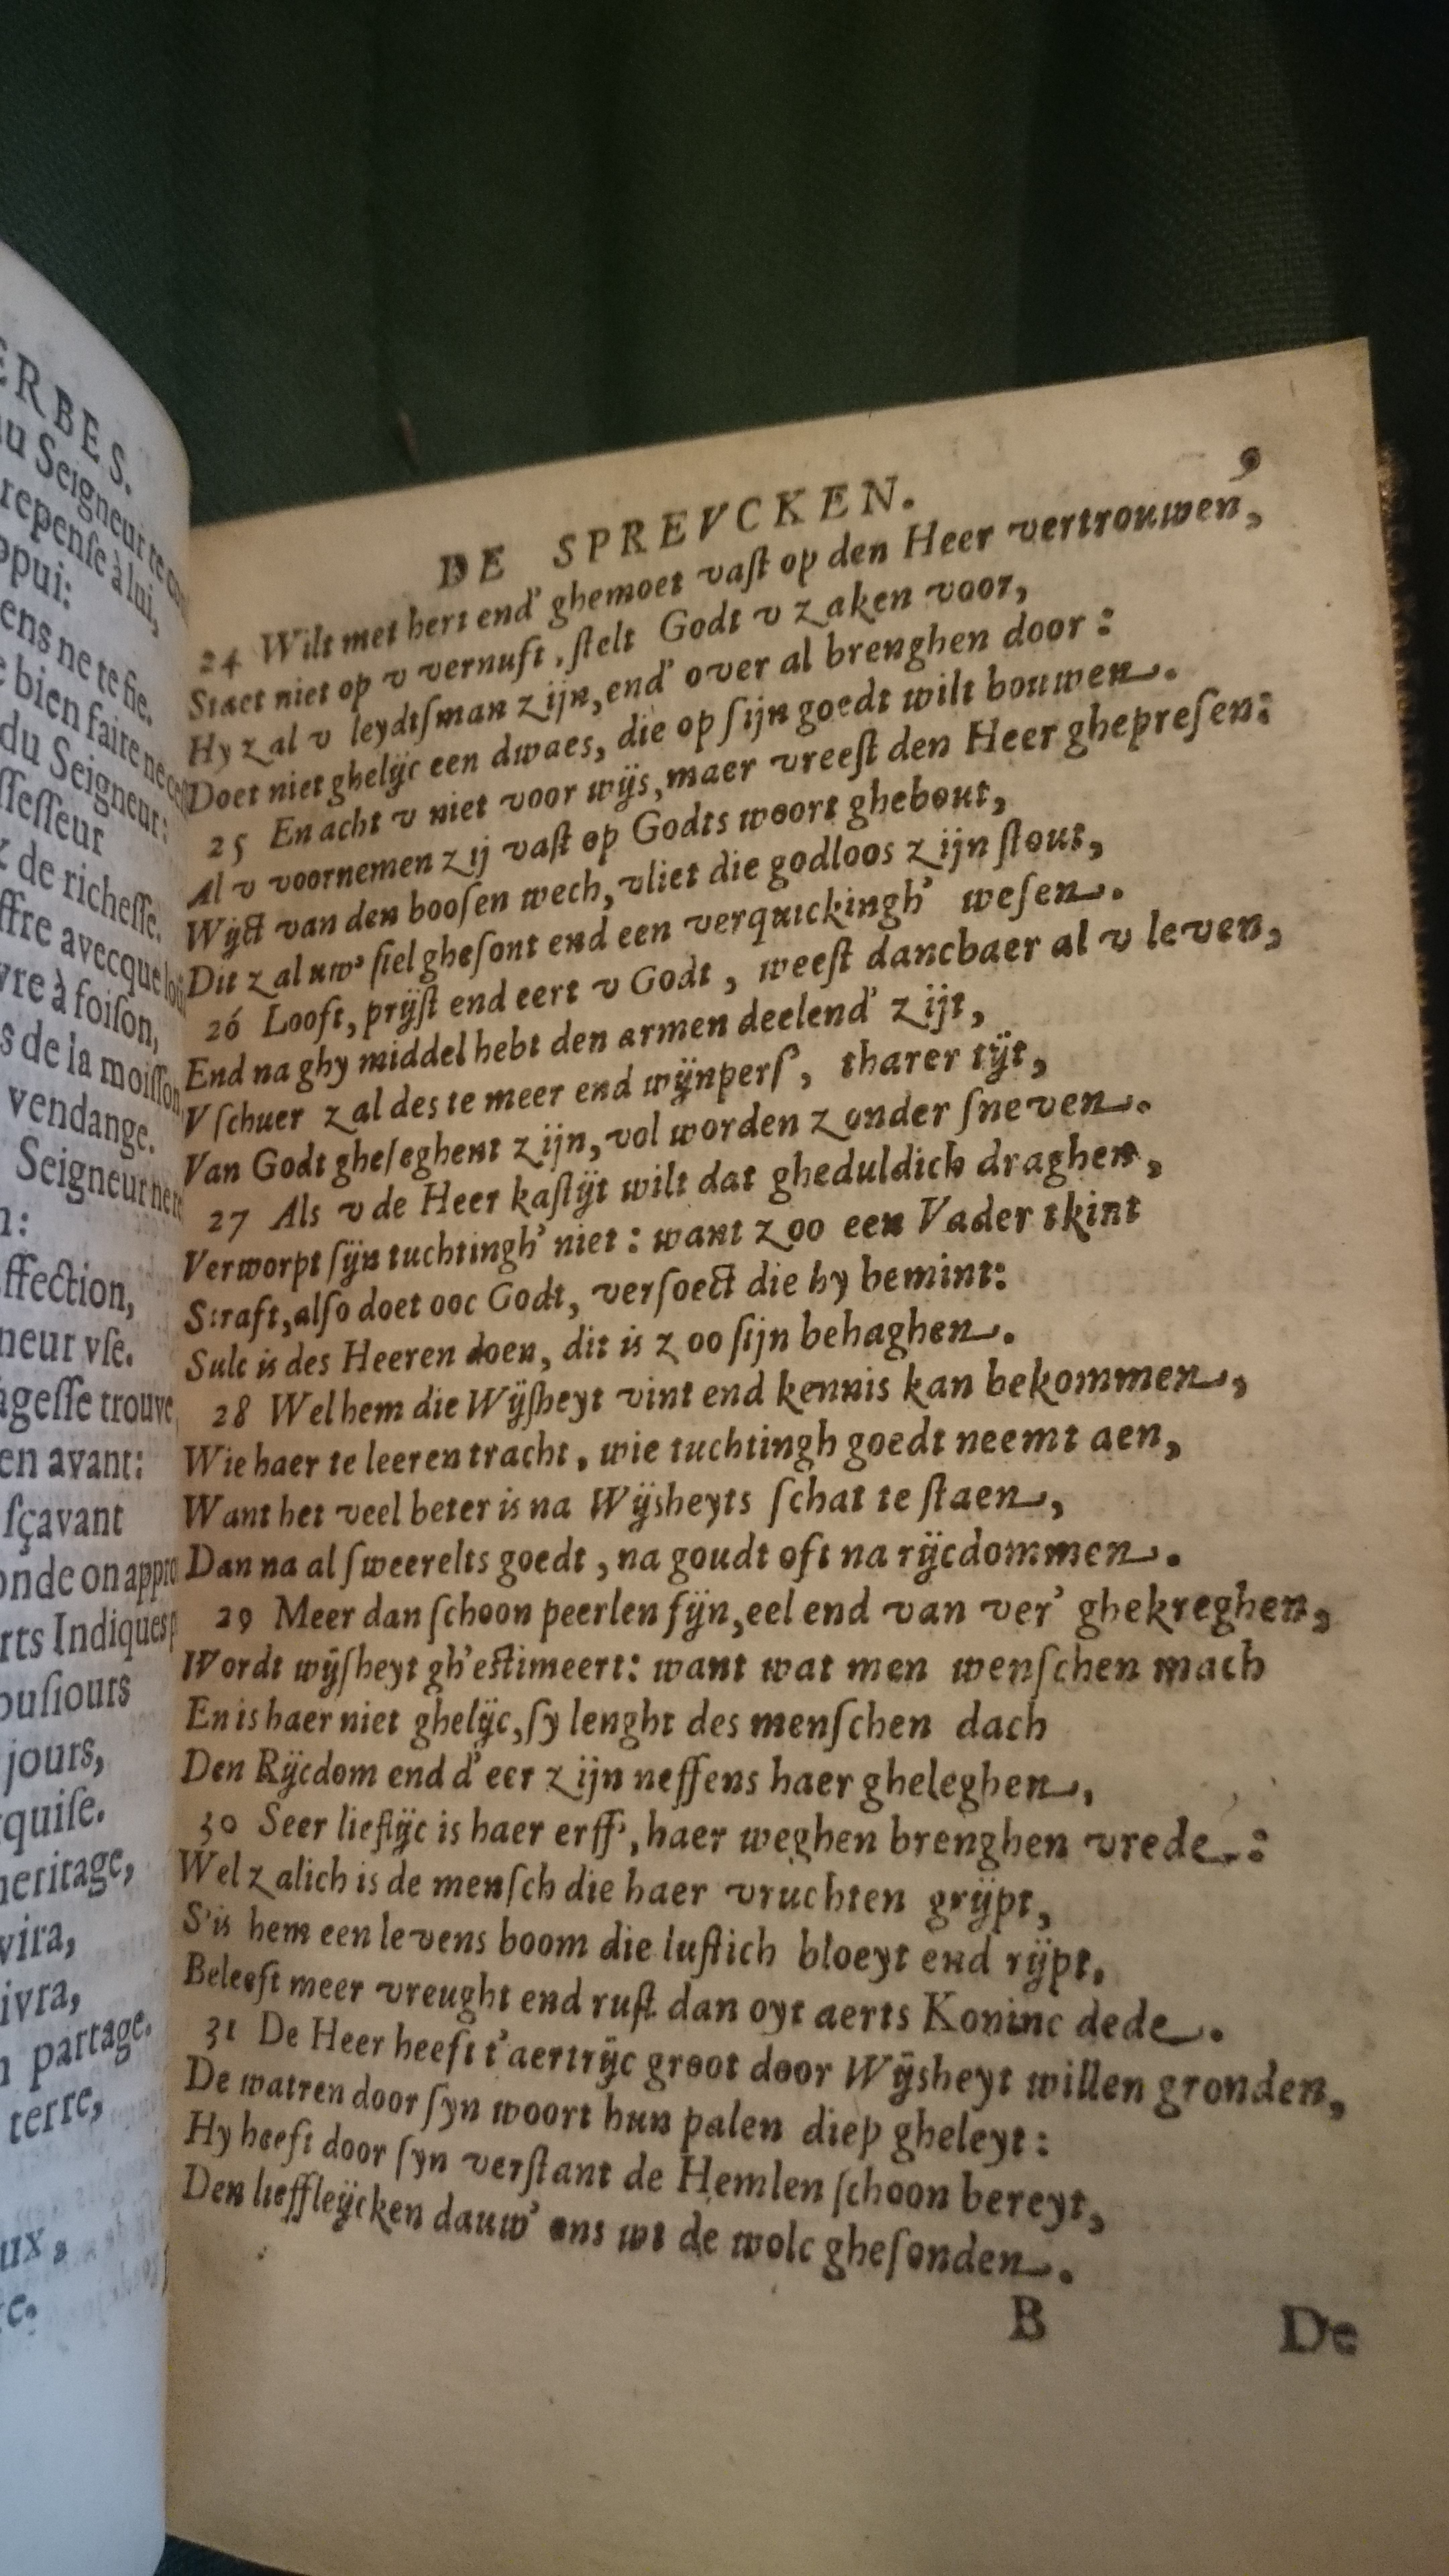 ERBES.
au Seigneur te
repenſe à lui,
ppui:
ens ne te fie.
bien faire ne
du Seigneur:
ſſeſſeur
de richeſſe.
ffre avecque
vre à foiſon,
s de la moiſſon
vendange.
Seigneur ne
n:
ffection,
neur vſe.
ageſſe trouve
en avant:
ſçavant
onde on appro
rts Indiques
ouſiours
jours,
quiſe.
heritage,
vira,
ivra,
partage.
terre,
ux,
e.
DE SPREVCKEN. 9
24 Wilt met hert end' ghemoet vaſt op den Heer vertrouwen,
Staet niet op v vernuft, ſtelt Godt v zaken voor,
Hy zal v leydtſman zijn, end' over al brenghen door:
Doet niet ghelijc een dwaes, die op ſijn goedt wilt bouwen.
25 En acht v niet voor wijs, maer vreeſt den Heer ghepreſen:
Al v voornemen zij vaſt op Godts woort ghebout,
Wijct van den booſen wech, vliet die godloos zijn ſtout,
Dit zal uw' ſiel gheſont end een verquickingh' weſen.
26 Looft, prijſt end eert v Godt, weeſt dancbaer al v leven,
End na ghy middel hebt den armen deelend' zijt,
V ſchuer zal des te meer end wijnperſ', tharer tijt,
Van Godt gheſeghent zijn, vol worden zonder ſneven.
27 Als v de Heer kaſtijt wilt dat gheduldich draghen,
Verworpt ſijn tuchtingh' niet: want zoo een Vader tkint
Straft, alſo doet ooc Godt, verſoect die hy bemint:
Sulc is des Heeren doen, dit is zoo ſijn behaghen.
28 Wel hem die Wijſheyt vint end kennis kan bekommen,
Wie haer te leeren tracht, wie tuchtingh goedt neemt aen,
Want het veel beter is na Wijsheyts ſchat te ſtaen,
Dan na al ſweerelts goedt, na goudt oft na rijcdommen.
29 Meer dan ſchoon peerlen fijn, eel end van ver' ghekreghen,
Wordt wijſheyt gh'eſtimeert: want wat men wenſchen mach
En is haer niet ghelijc, ſy lenght des menſchen dach
Den Rijcdom end d'eer zijn neffens haer gheleghen,
30 Seer lieflijc is haer erff', haer weghen brenghen vrede:
Wel zalich is de menſch die haer vruchten grijpt,
S'is hem een levens boom die luſtich bloeyt end rijpt,
Beleeft meer vreught end ruſt dan oyt aerts Koninc dede.
31 De Heer heeft t'aertrijc groot door Wijsheyt willen gronden,
De watren door ſyn woort hun palen diep gheleyt:
Hy heeft door ſyn verſtant de Hemlen ſchoon bereyt,
Den lieffleijcken dauw' ons wt de wolc gheſonden.
B De